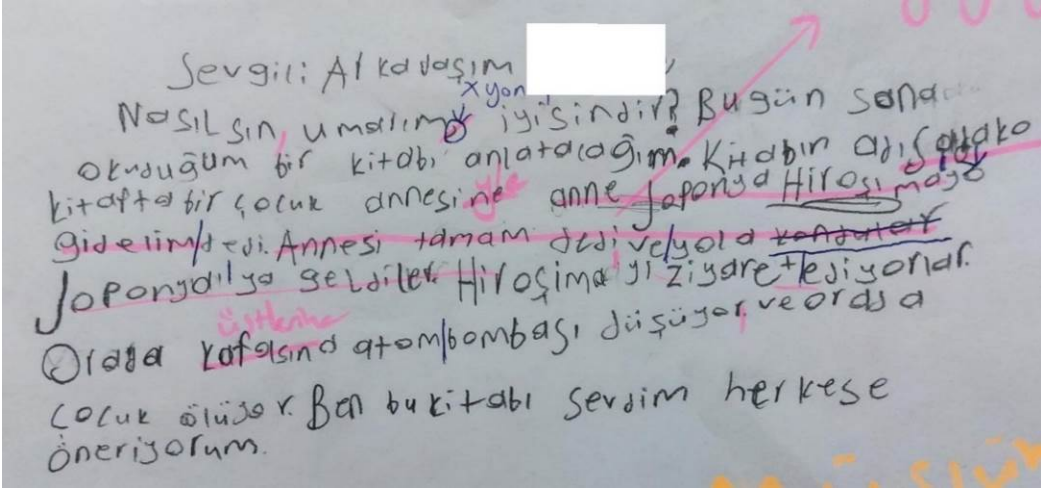 Sevgili Alkadaşım
xyon
Nasılsın, umarım iyisindir? Bugün sana
okuduğum bir kitabı anlatacağım. Kitabın adı Sadako
kitapta bir çocuk annesine anne Japonya Hiroşimaya
gidelim dedi. Annesi tamam dedi ve yola
Japonyalya geldiler. Hiroşima yı ziyaret ediyorlar.
üstlerine
Orada kafasına atom bombası düşüyor ve orda
çocuk ölüyor. Ben bu kitabı sevdim herkese
öneriyorum.